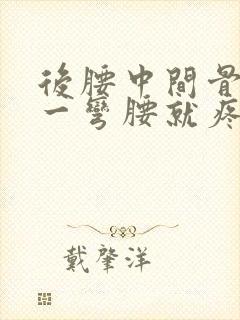 後腰中間骨
一彎腰就疼
戴肇洋